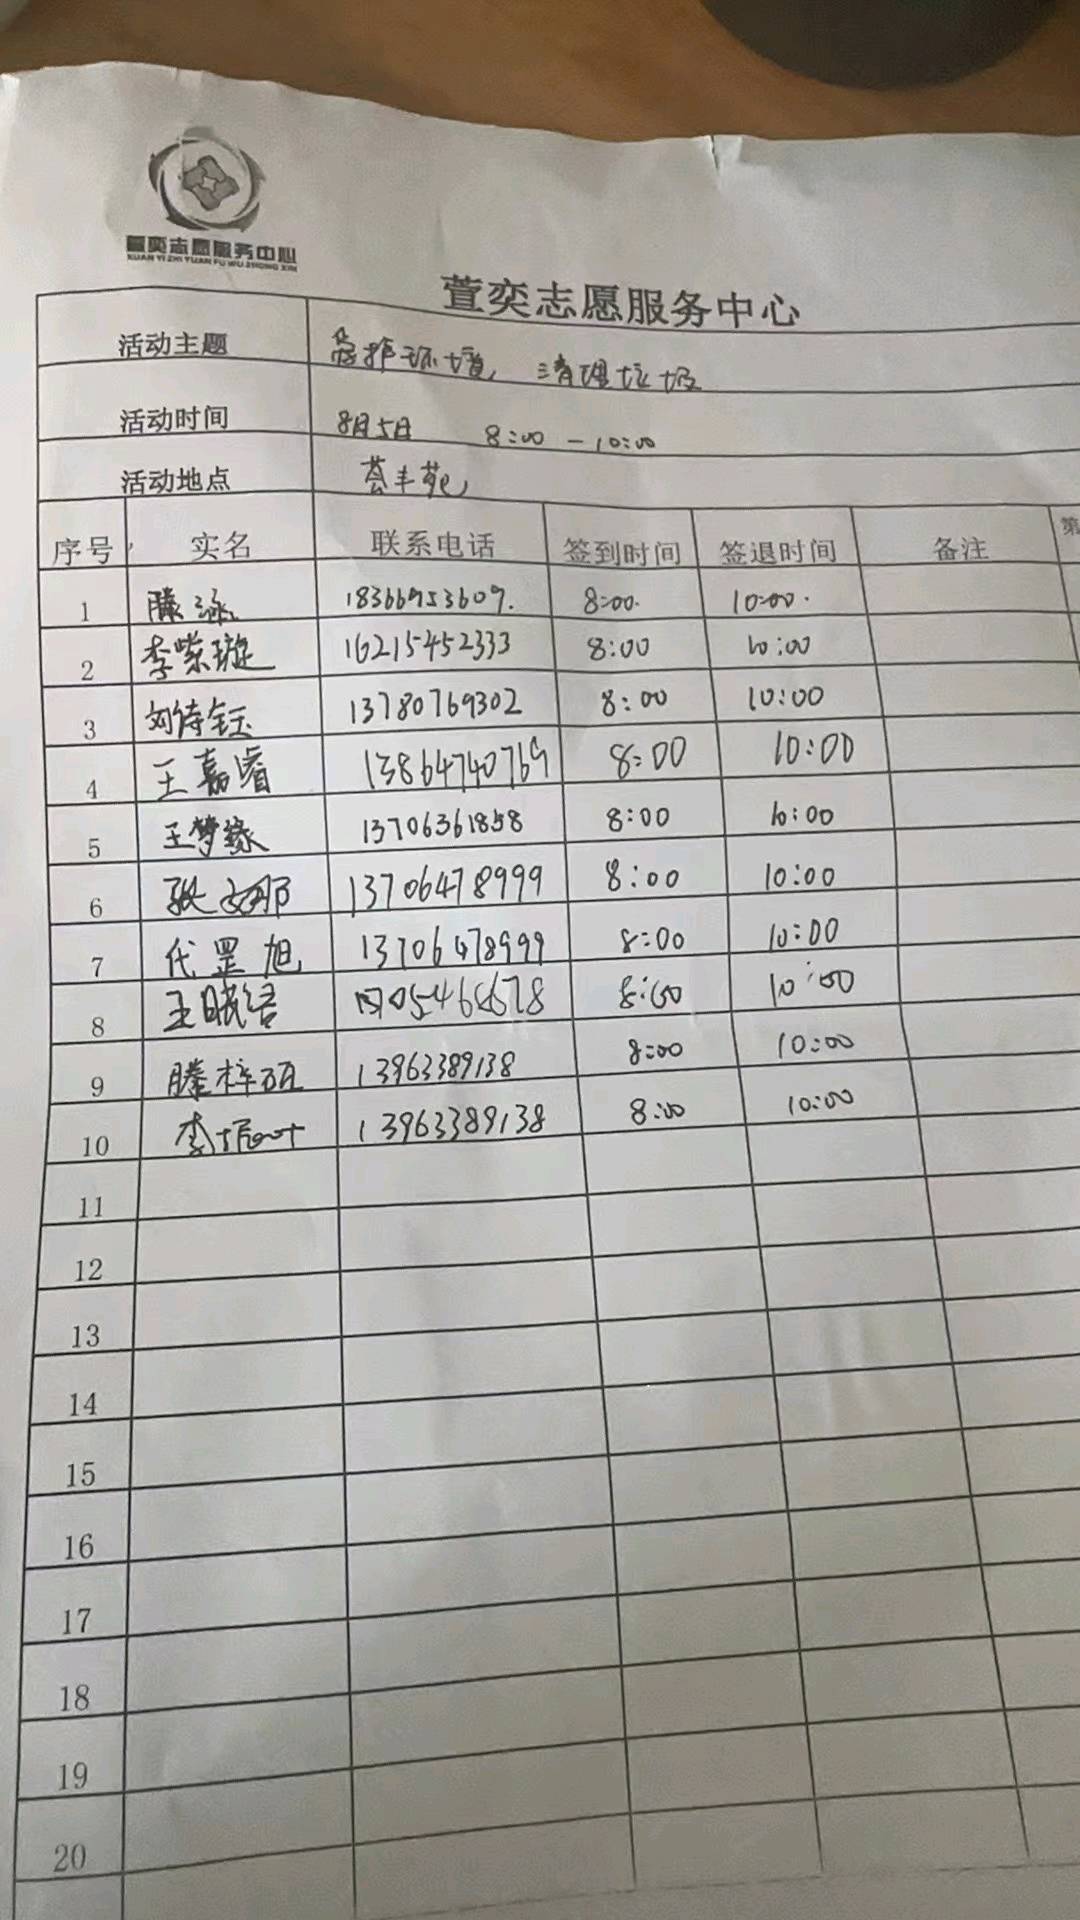 萱奕志愿服务中心
XUAN YI ZHI YUAN FU WU ZHONG XIN
萱奕志愿服务中心
活动主题 爱护环境，清理垃圾
活动时间 8月5日 8:00 - 10:00
活动地点 荟丰苑
序号 实名 联系电话 签到时间 签退时间 备注 第
1 滕 18366953609. 8:00. 10:00.
2 李紫璇 16215452333 8:00 10:00
3 刘诗钰 13780769302 8:00 10:00
4 王嘉睿 13864740769 8:00 10:00
5 王梦缘 13706361858 8:00 10:00
6 张文那 13706478999 8:00 10:00
7 代罡旭 13706478999 8:00 10:00
8 王晓 8:00 10:00
9 滕梓 13963389138 8:00 10:00
10 李 13963389138 8:00 10:00
11
12
13
14
15
16
17
18
19
20